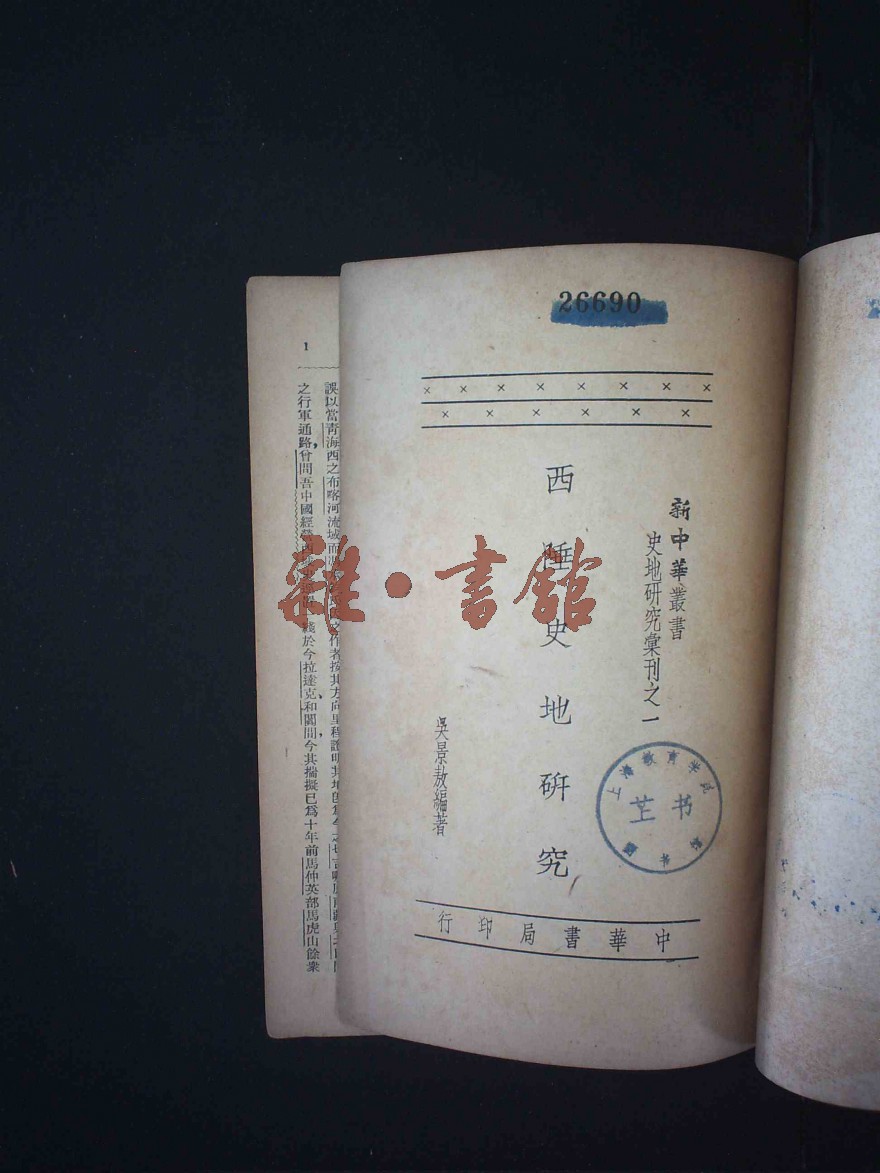 26690
新中華叢書
史地研究彙刊之一
西陲史地研究
吳景敖編著
中華書局印行
上海教育学院
书
雜·書館
1
誤以當青海西之布喀河流域而
作者按其方向里程證明其地
之行軍通路，曾問吾中國經營西
綫於今拉達克、和闐間，今其揣擬已爲十年前馬仲英部馬虎山餘衆